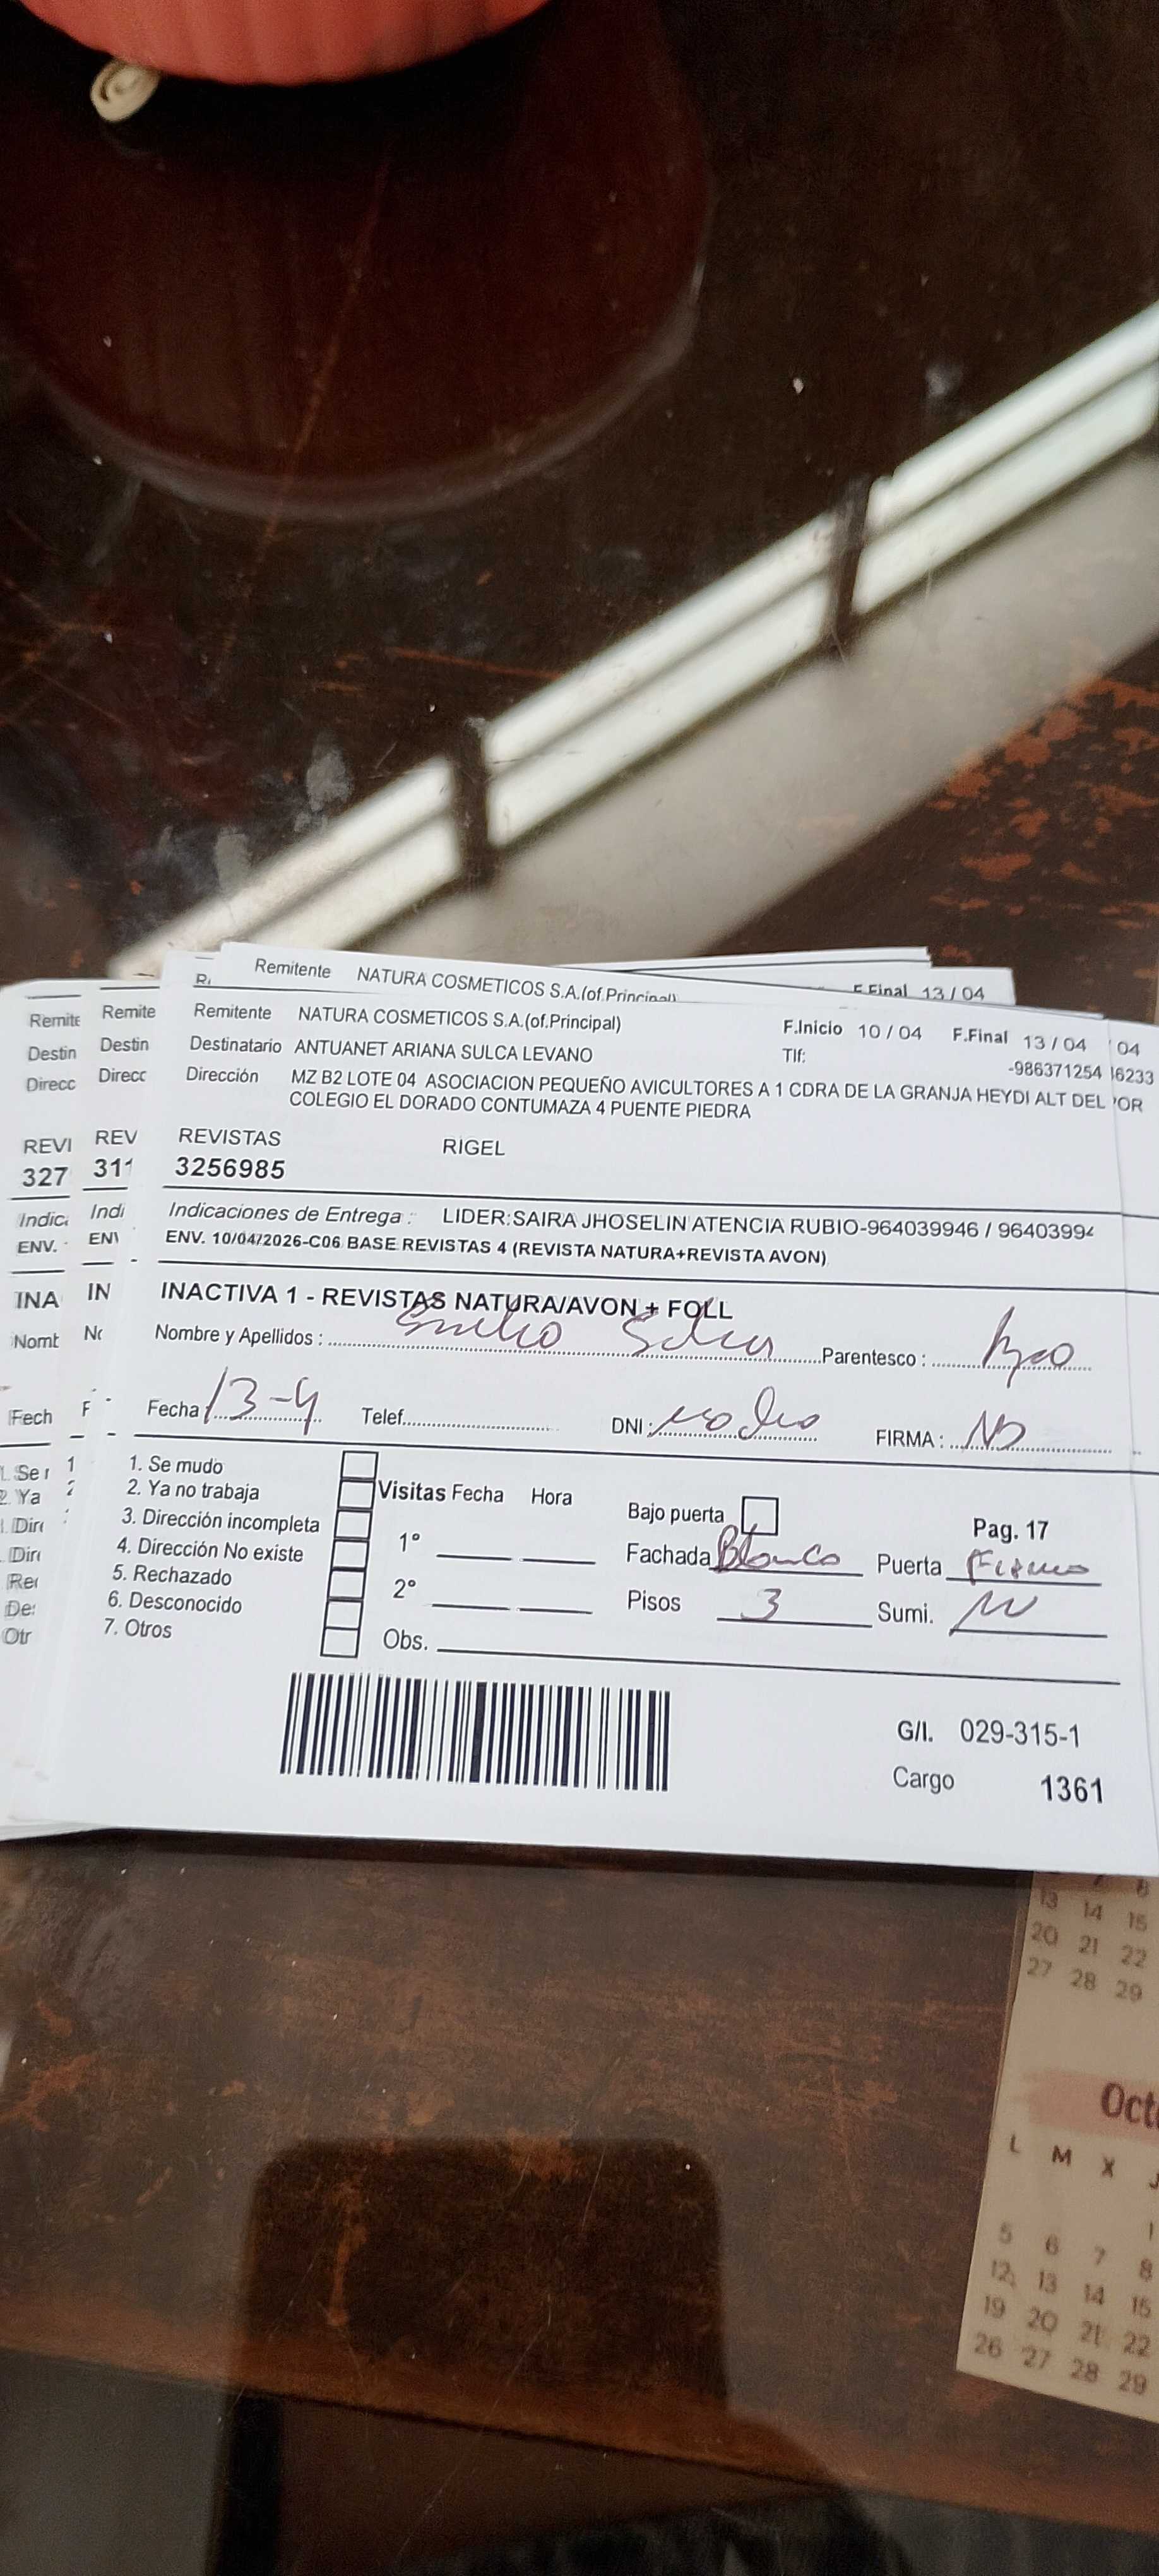 Remitente NATURA COSMETICOS S.A.(of.Principal)
F.Final 13/04
Remitente NATURA COSMETICOS S.A.(of.Principal) F.Inicio 10/04 F.Final 13/04
Destinatario ANTUANET ARIANA SULCA LEVANO Tlf: -986371254
Dirección MZ B2 LOTE 04 ASOCIACION PEQUEÑO AVICULTORES A 1 CDRA DE LA GRANJA HEYDI ALT DEL
COLEGIO EL DORADO CONTUMAZA 4 PUENTE PIEDRA
REVISTAS RIGEL
3256985
Indicaciones de Entrega : LIDER:SAIRA JHOSELIN ATENCIA RUBIO-964039946 / 96403994
ENV. 10/04/2026-C06 BASE REVISTAS 4 (REVISTA NATURA+REVISTA AVON)
INACTIVA 1 - REVISTAS NATURA/AVON + FOLL
Nombre y Apellidos : Emilio Sulca Parentesco :
Fecha 13-4 Telef. DNI : no dio FIRMA :
1. Se mudo
2. Ya no trabaja
3. Dirección incompleta
4. Dirección No existe
5. Rechazado
6. Desconocido
7. Otros
Visitas Fecha Hora
1°
2°
Obs.
Bajo puerta Pag. 17
Fachada Blanco Puerta Fierro
Pisos 3 Sumi.
G/I. 029-315-1
Cargo 1361
Remite
Destin
Direcc
REV
311
Indi
Remite
Destin
Direcc
REVI
327
Indic
ENV.
INA
Nomb
Fech
04
6233
13 14 15
20 21 22
27 28 29
Oct
L M X J
1
5 6 7 8
12 13 14 15
19 20 21 22
26 27 28 29